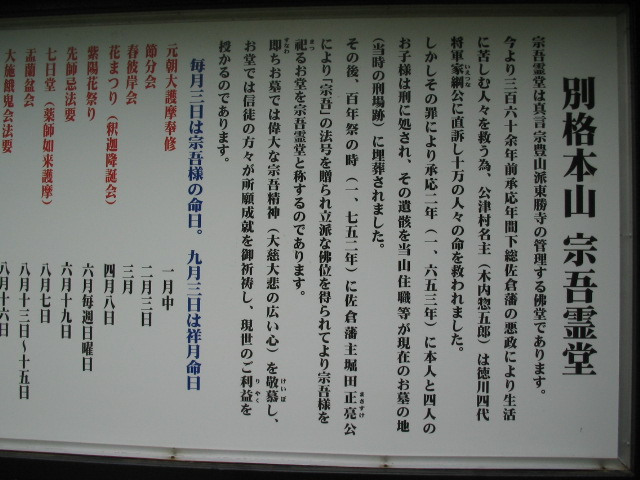 別格本山 宗吾霊堂
宗吾霊堂は真言宗豊山派東勝寺の管理する佛堂であります。
今より三百六十余年前承応年間下総佐倉藩の悪政により生活
に苦しむ人々を救う為、公津村名主（木内惣五郎）は徳川四代
将軍家綱公に直訴し十万の人々の命を救われました。
いえつな
しかしその罪により承応二年（一、六五三年）に本人と四人の
お子様は刑に処され、その遺骸を当山住職等が現在のお墓の地
（当時の刑場跡）に埋葬されました。
その後、百年祭の時（一、七五二年）に佐倉藩主堀田正亮公
まさすけ
により「宗吾」の法号を贈られ立派な佛位を得られてより宗吾様を
祀るお堂を宗吾霊堂と称するのであります。
まつ
即ちお墓では偉大な宗吾精神（大慈大悲の広い心）を敬慕し、
すなわ
けいぼ
お堂では信徒の方々が所願成就を御祈祷し、現世のご利益を
りやく
授かるのであります。
毎月三日は宗吾様の命日。九月三日は祥月命日
元朝大護摩奉修 一月中
節分会 二月三日
春彼岸会 三月
花まつり（釈迦降誕会） 四月八日
紫陽花祭り 六月毎週日曜日
先師忌法要 六月十九日
七日堂（薬師如来護摩） 八月七日
盂蘭盆会 八月十三日～十五日
大施餓鬼会法要 八月十六日